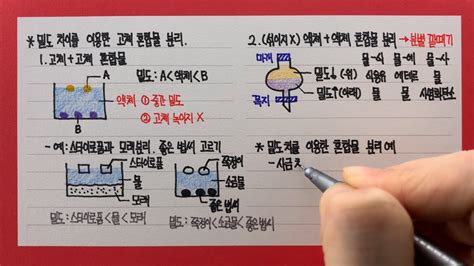 * 밀도 차이를 이용한 고체 혼합물 분리.
1. 고체 + 고체 혼합물
A
밀도 : A < 액체 < B
액체 ① 중간 밀도
② 고체 녹이지 X
B
- 예 : 스타이로폼과 모래분리. 좋은 볍씨 고르기
스타이로폼
물
모래
쭉정이
소금물
좋은 볍씨
밀도 : 스타이로폼 < 물 < 모래
밀도 : 쭉정이 < 소금물 < 좋은 볍씨
2. (섞이지 X) 액체 + 액체 혼합물 분리 → 분별 깔때기
마개
꼭지
밀도↓ (위)
밀도↑ (아래)
물-식 물-에 물-사
식용유 에테르 물
물 물 사염화탄소
* 밀도 차를 이용한 혼합물 분리 예
- 사금